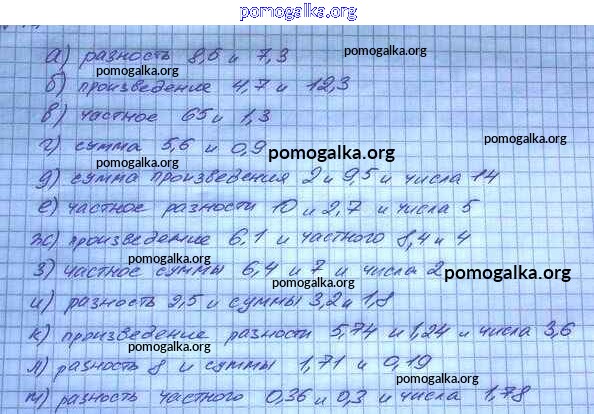 pomogalka.org
а) разность 8,6 и 7,3
pomogalka.org
pomogalka.org
б) произведение 4,7 и 12,3
в) частное 65 и 1,3
pomogalka.org
г) сумма 5,6 и 0,9
pomogalka.org
д) сумма произведения 2 и 9,5 и числа 14
pomogalka.org
е) частное разности 10 и 2,7 и числа 5
ж) произведение 6,1 и частного 8,4 и 4
pomogalka.org
з) частное суммы 6,4 и 7 и числа 2
pomogalka.org
и) разность 2,5 и суммы 3,2 и 1,8
к) произведение разности 5,74 и 1,24 и числа 3,6
pomogalka.org
л) разность 8 и суммы 1,71 и 0,19
pomogalka.org
м) разность частного 0,36 и 0,3 и числа 1,78
pomogalka.org